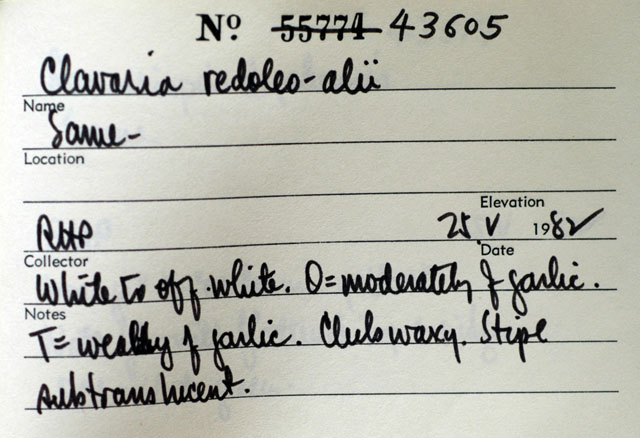 Nº 55774 43605
Clavaria redoleo-alii
Name
Same-
Location
Elevation
RHP 25 V 1982
Collector Date
White to off-white. O=moderately of garlic.
Notes
T= weakly of garlic. Clubs waxy. Stipe
subtranslucent.